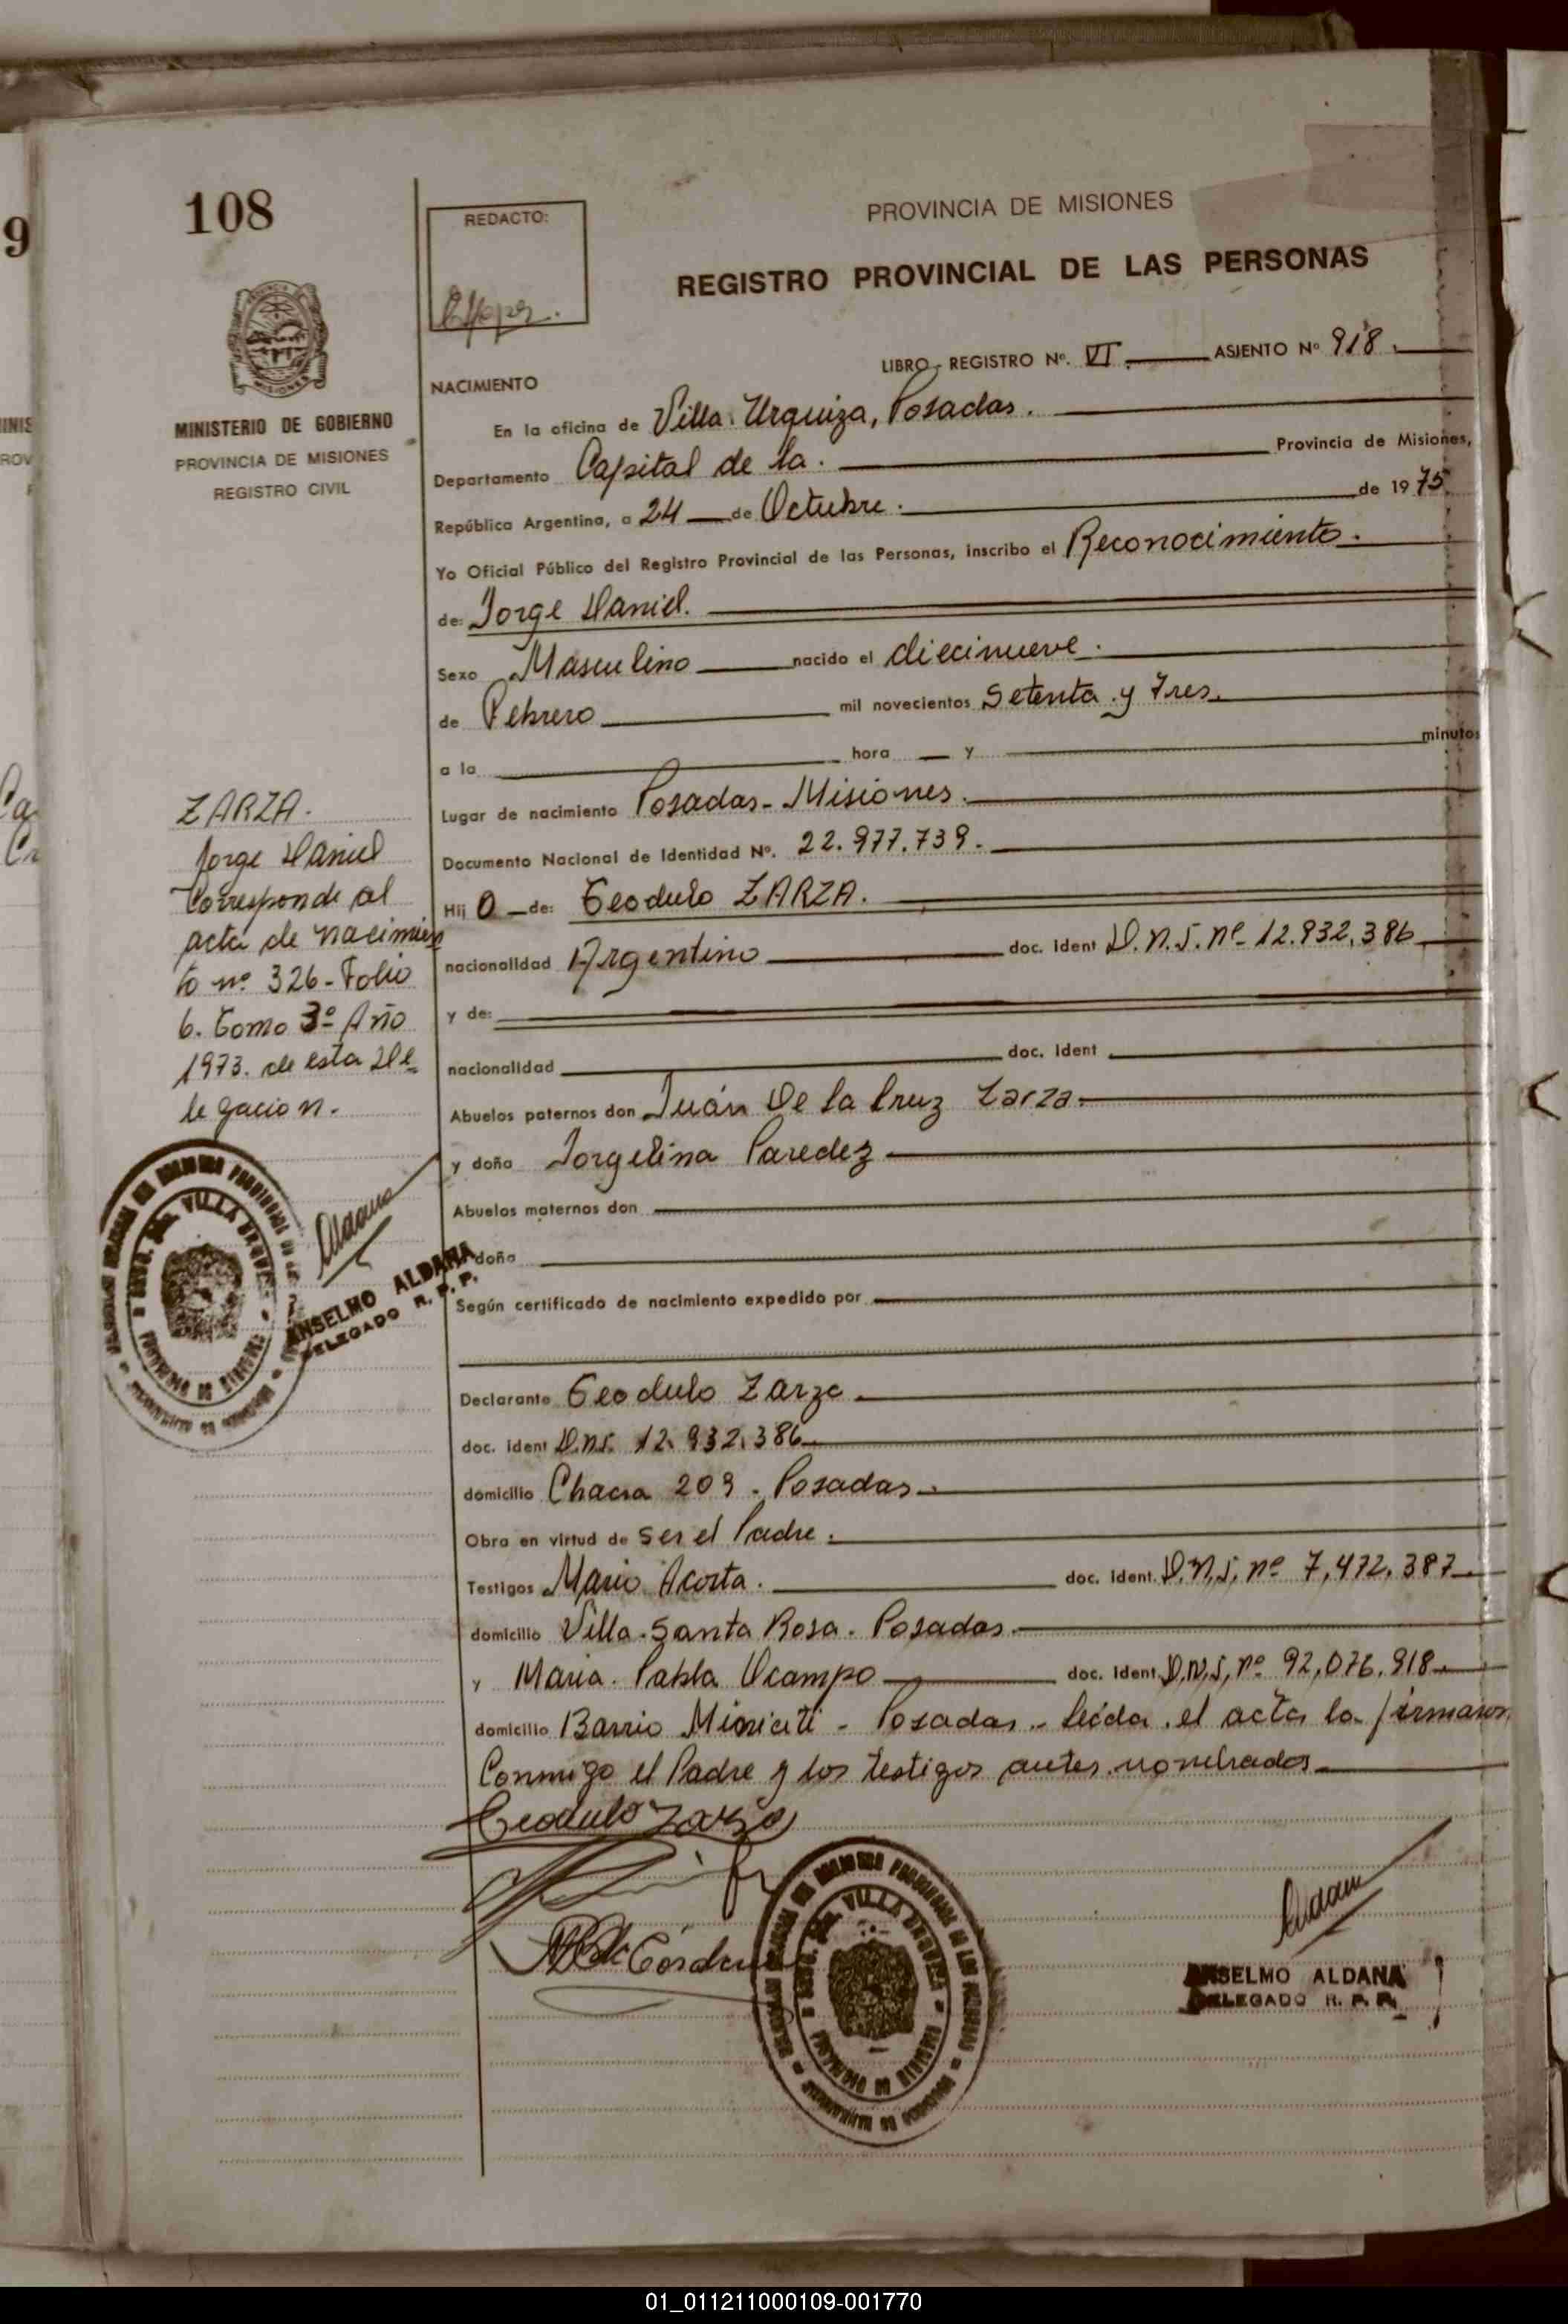 108
REDACTO:
PROVINCIA DE MISIONES
REGISTRO PROVINCIAL DE LAS PERSONAS
LIBRO - REGISTRO Nº. VI. ASIENTO Nº 918.
MINISTERIO DE GOBIERNO
PROVINCIA DE MISIONES
REGISTRO CIVIL
NACIMIENTO
En la oficina de Villa Urquiza, Posadas.
Departamento Capital de la. Provincia de Misiones,
República Argentina, a 24 de Octubre. de 1975.
Yo Oficial Público del Registro Provincial de las Personas, inscribo el Reconocimiento.
de: Jorge Daniel.
Sexo Masculino nacido el diecinueve.
de Febrero mil novecientos Setenta y Tres.
a la hora y minutos
Lugar de nacimiento Posadas - Misiones.
Documento Nacional de Identidad Nº. 22.977.739.
Hij o de: Teodulo ZARZA.
nacionalidad Argentino doc. ident D.N.I. nº 12.932.386
y de:
nacionalidad doc. ident
Abuelos paternos don Juán De la Cruz Zarza.
y doña Jorgelina Paredez
Abuelos maternos don
doña
Según certificado de nacimiento expedido por
Declarante Teodulo Zarza
doc. ident D.N.I. 12.932.386
domicilio Chacra 209. Posadas.
Obra en virtud de ser el Padre.
Testigos Mario Acosta. doc. ident. D.N.I. nº 7,472.387
domicilio Villa Santa Rosa. Posadas
y Maria Pabla Ocampo doc. ident D.N.I. nº 92,076.918
domicilio Barrio - Posadas - Leída el acta la firmaron
Conmigo el Padre y los testigos antes nombrados
ZARZA.
Jorge Daniel
Corresponde al
acta de nacimien
to nº 326 - Folio
6. Tomo 3º Año
1973. de esta De
legacion.
Aldana
ANSELMO ALDANA
DELEGADO R. P. P.
VILLA URQUIZA
Teodulo Zarza
Aldana
ANSELMO ALDANA
DELEGADO R. P. P.
VILLA URQUIZA
01_011211000109-001770